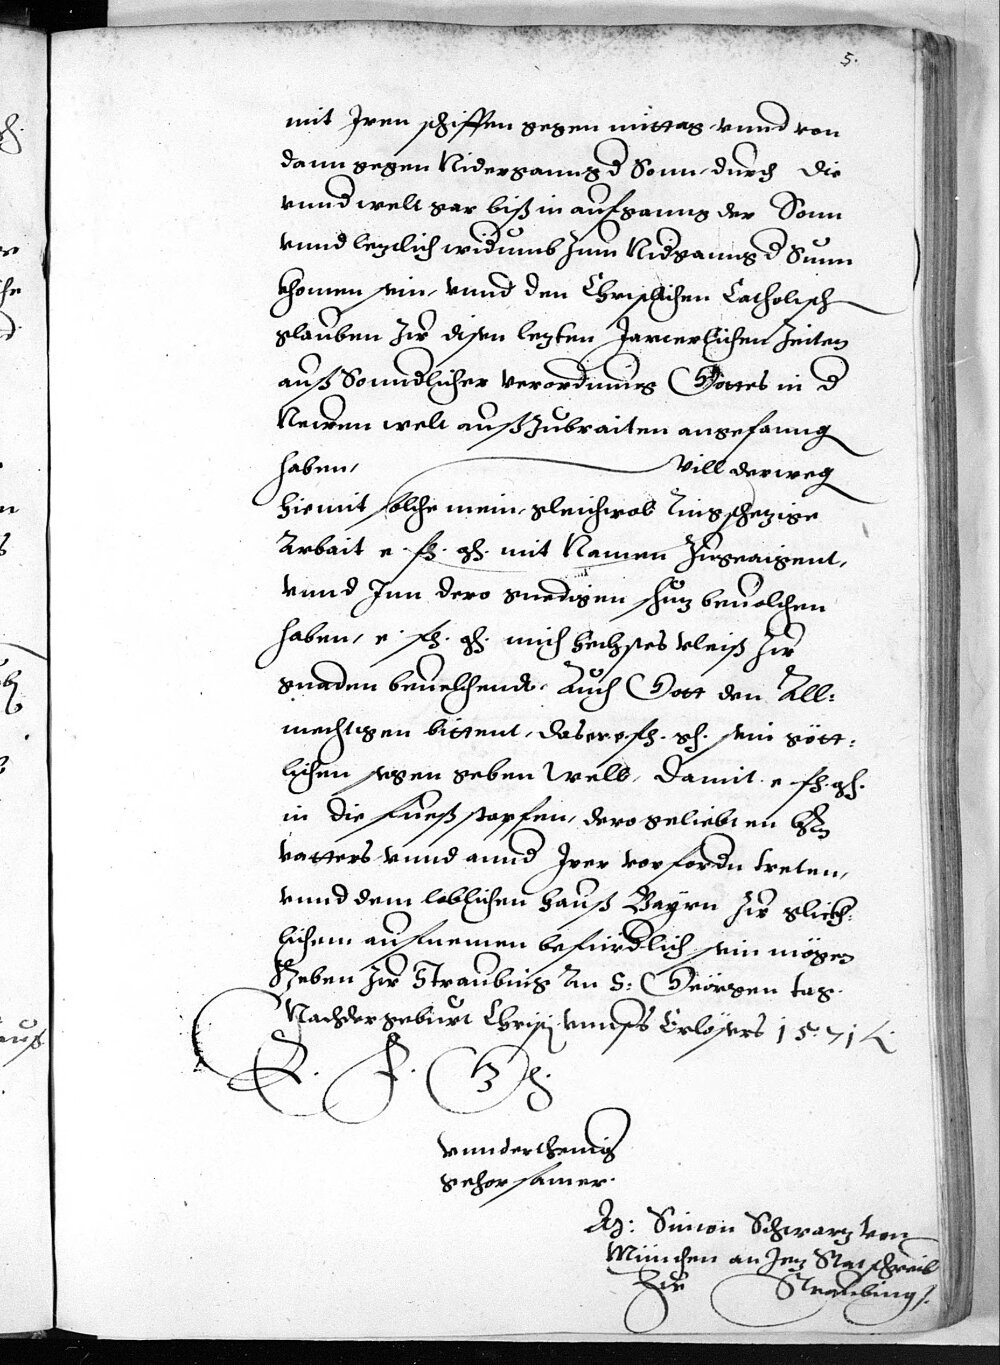 5.
mit Iren schiffen gegen mittag vnnd von
dann gegen Niderganng d Sonn durch die
vnnd welt gar biß in aufganng der Sonn
vnnd letzlich widumb zum Nidganng d Sunn
khomen sein, vnnd den Christlichen Catholisch
glauben zur disen letzten Jamerlichen Zeiten
auß Sonndlicher verordnung Gottes in d
Newen welt auß Zubraiten angefanng
haben, Will derweg
hiemit solche mein, gleichwol ringschezige
Arbait e. fh. gh. mit Namen Zugeaigent,
vnnd Inn dero gnedigen schuz beuolchen
haben, e. fh. gh. mich höchstes vleiß zur
gnaden beuelchendt, Auch Gott den All:
mechtigen bittent, das er e. fh. gh. sein gött:
lichen segen geben welle, Damit e fh. gh.
in die fueß stapfen, dero geliebten
vatters vnnd annd Irer vorfordn treten,
vnnd dem loblichen hauß Bayrn zur glickh:
lichem aufnemen befürdlich sein mögen
Geben zur Straubing An S: Geörgen tag.
Nach der geburt Christi vnnsers Erlösers 1571
E. F. G h.
vnnderthenig
gehorsamer.
Simon Schwarz von
München an Jez Statschreib
zur Straubing